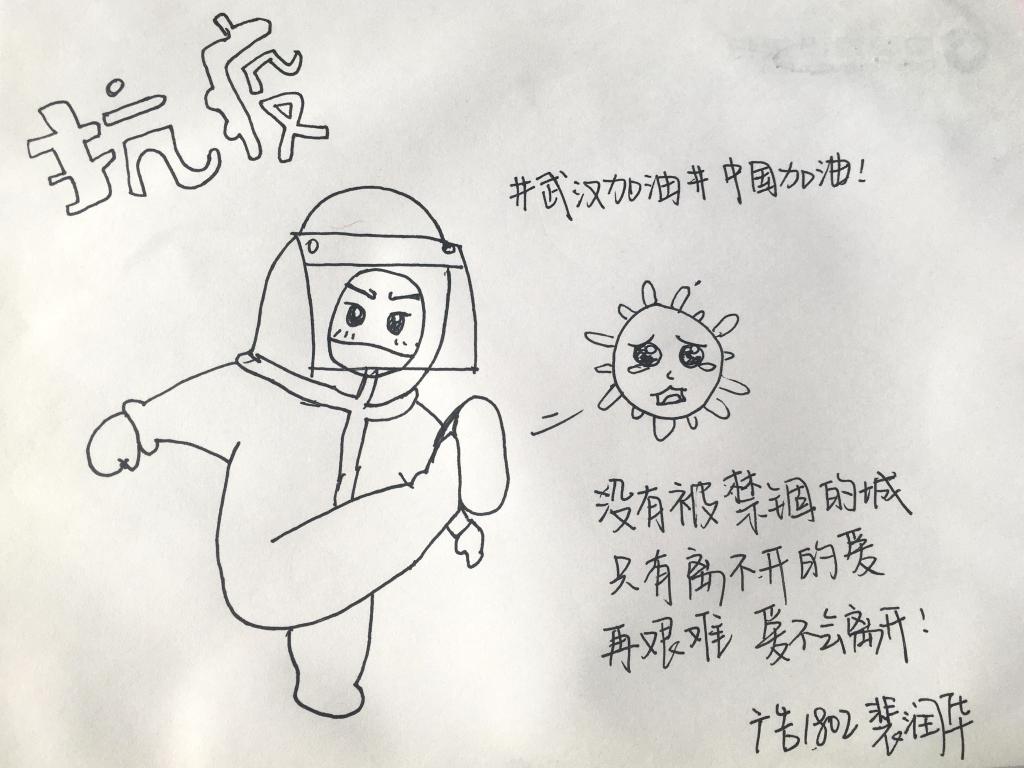 抗疫
#武汉加油#中国加油!
没有被禁锢的城
只有离不开的爱
再艰难 爱不会离开!
广告1802 裴润华